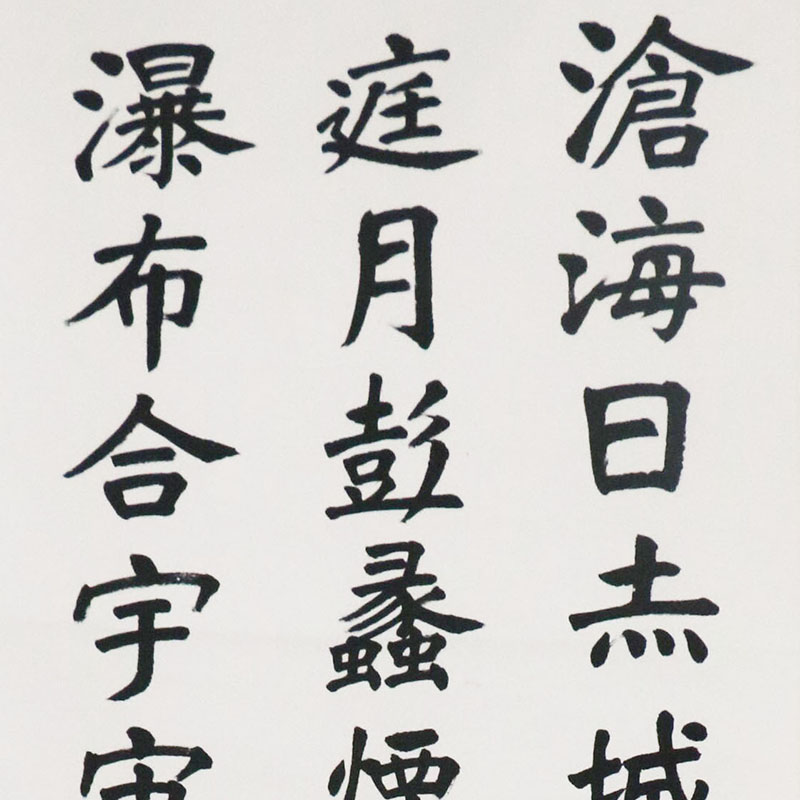 滄海日赤城
庭月彭蠡煙
瀑布合宇宙